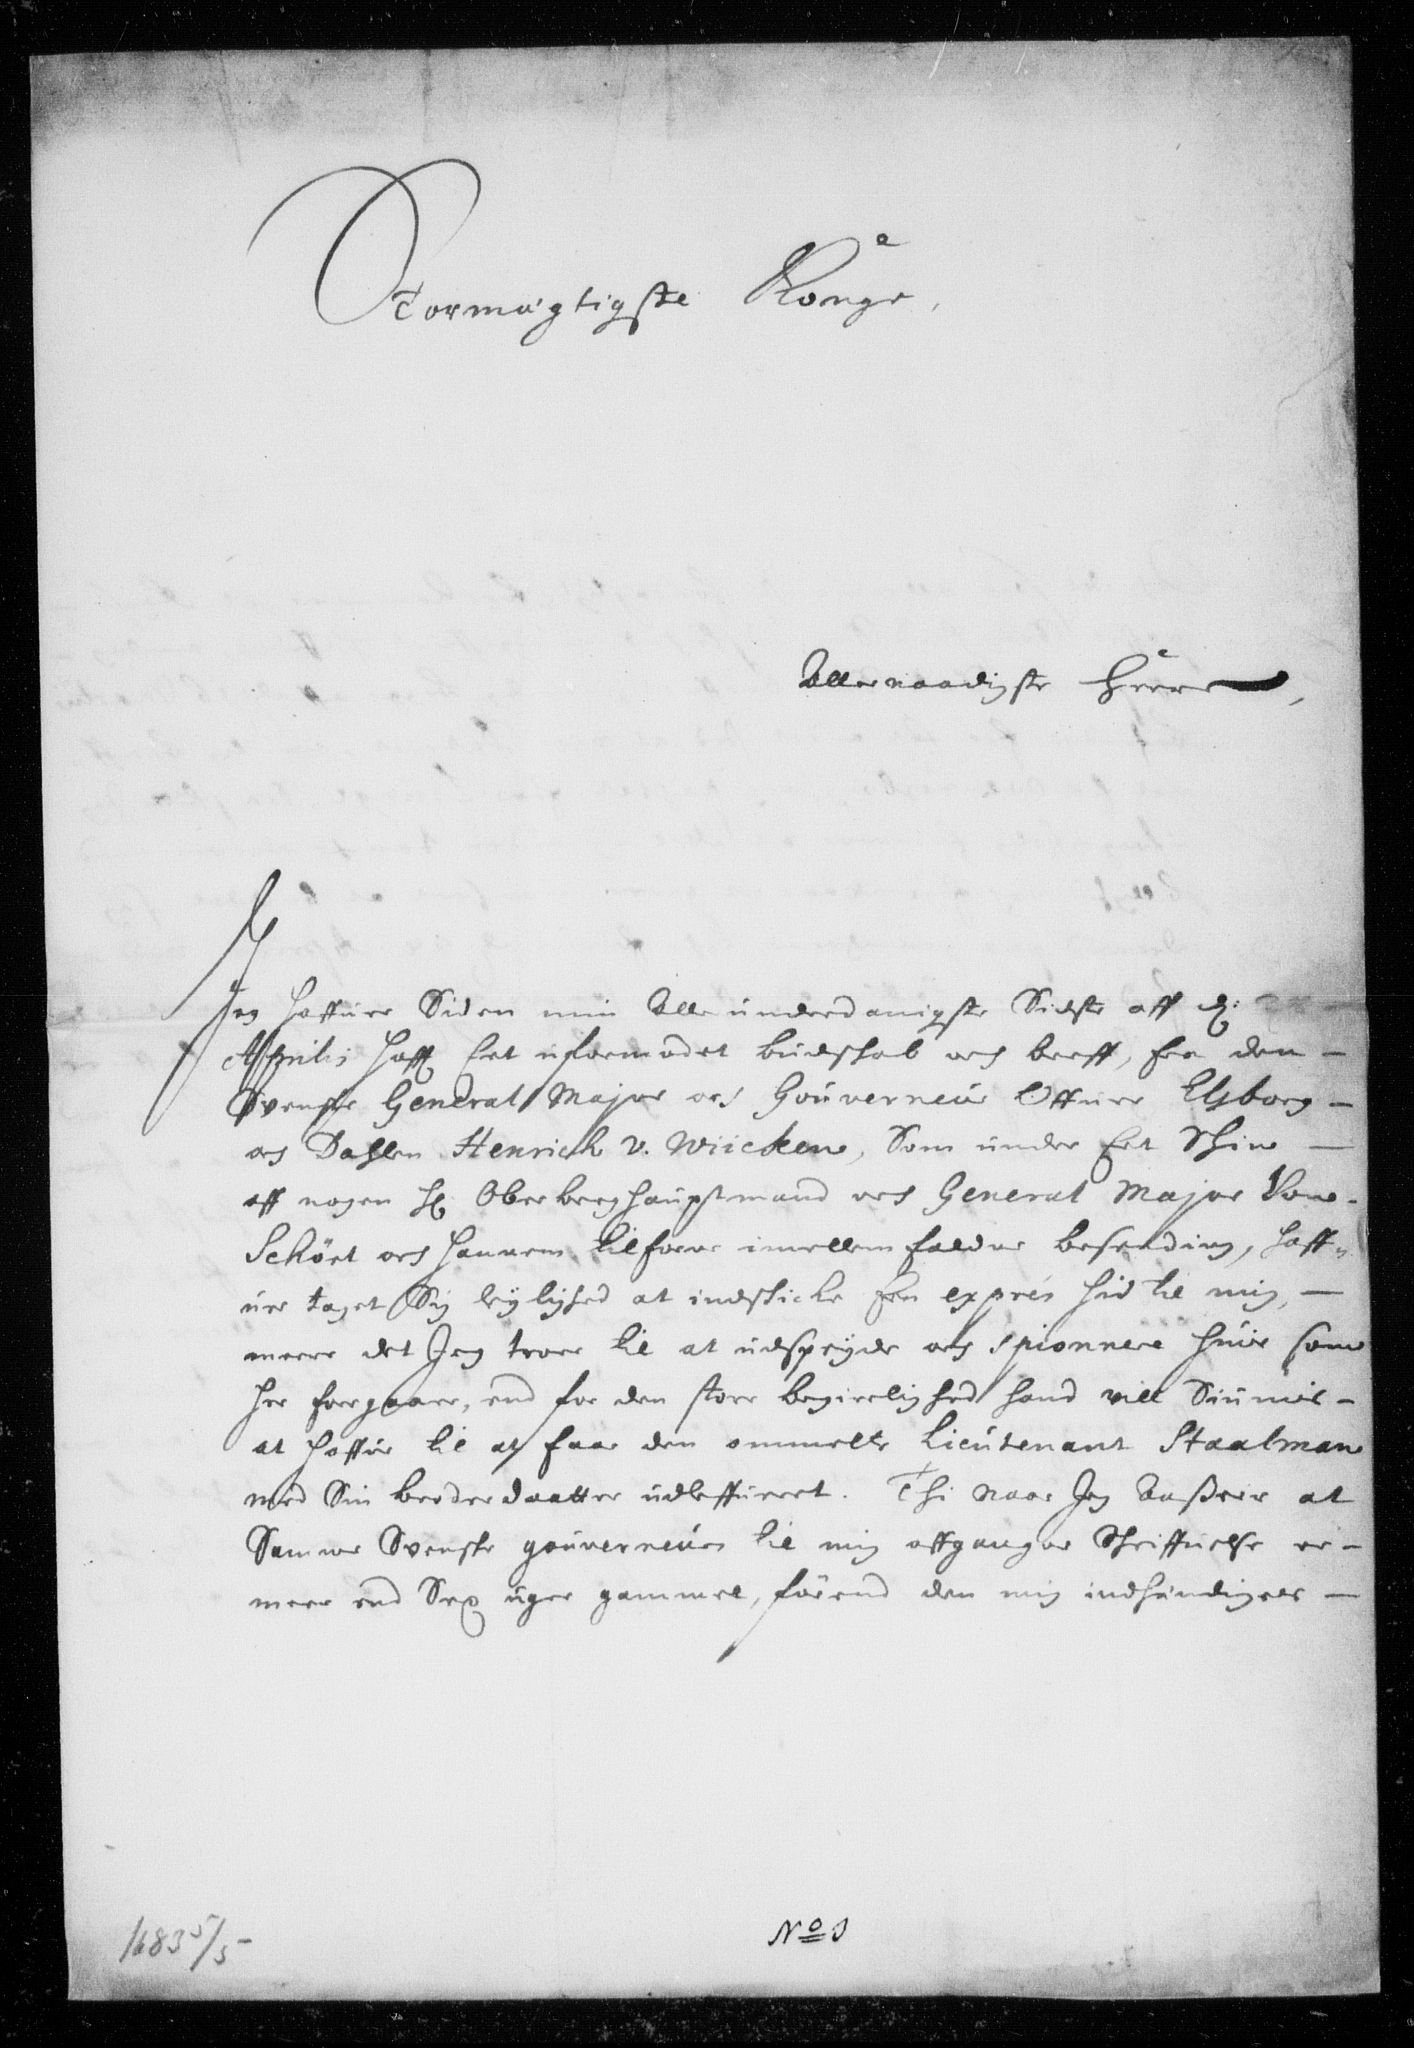 Stormägtigste Konge,
Allernaadigste Herre,
Jeg haffuer Siden min Allerunderdanigste Sidste aff
Aprilis haft Eet uformodet budschab och breff, fra den
Svenske General Major och Gouverneur Offuer Elsborg
och Dahlen Henrich v. Wiicken, Som under Eet Schin
aff nogen Hr Oberberghauptmand och General Major Von
Schört och hannem tilforne imellem falden besending, haff-
uer taget Sig leylighed at indskicke Een expres hid til mig,
meere det Jeg troer til at udspeyde och spionnere huis som
her foregaar, end for den store begierlighed hand vill Siunis
at haffue til at faae den ommelte Lieutenant Staalman
med Sin broderdaatter udleffueret. Thi naar Jeg Anseer at
Samme Svenske gouverneurs til mig affgangne Schriffuelse er
meer end Sex uger gammel, förend den mig indhændiges
No 1
1683 5/5